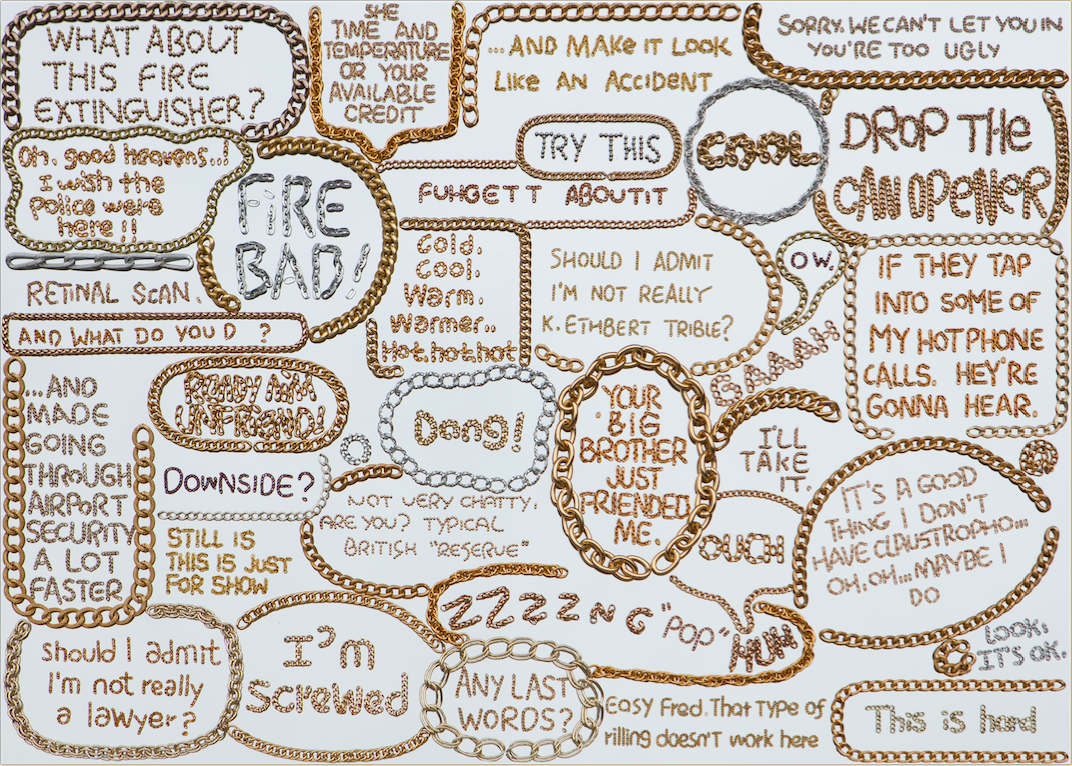 WHAT ABOUT
THIS FIRE
EXTINGUISHER?
SHE
TIME AND
TEMPERATURE
OR YOUR
AVAILABLE
CREDIT
...AND MAKe IT LOOK
LiKe AN ACCIDENT
SORRY. WE CAN'T LET YOU IN
YOU'RE TOO UGLY
Oh, good heavens..!
I wish the
Police were
here !!
FiRE
BAD!
TRY THIS
COOL
DROP THe
CAN OPeNeR
FUHGETT ABOUTIT
RETINAL SCAN.
AND WHAT DO YOU D ?
Cold.
Cool.
Warm.
Warmer..
Hot.hot.hot
SHOULD I ADMIT
I'M NOT REALLY
K. ETHBERT TRIBLE?
OW.
GAAAH
IF THEY TAP
INTO SOME OF
MY HOTPHONE
CALLS. HEY'RE
GONNA HEAR.
...AND
MADE
GOING
THROUGH
AIRPORT
SECURITY
A LOT
FASTER
READY AIM
UNFRIEND!
Dang!
YOUR
BIG
BROTHER
JUST
FRIENDED
ME.
I'LL
TAKE
IT.
DOWNSIDE?
NOT VERY CHATTY,
ARE YOU? TYPICAL
BRITISH "RESERVE"
STILL IS
THIS IS JUST
FOR SHOW
OUCH
IT'S A GOOD
THING I DON'T
HAVE CLAUSTROPHO...
OH, OH... MAYBE I
DO
ZZZZNG "POP" HUM
LOOK,
IT'S OK.
Should I admit
I'm not really
a lawyer?
I'm
screwed
ANY LAST
WORDS?
Easy Fred. That Type of
rilling doesn't work here
This is hard